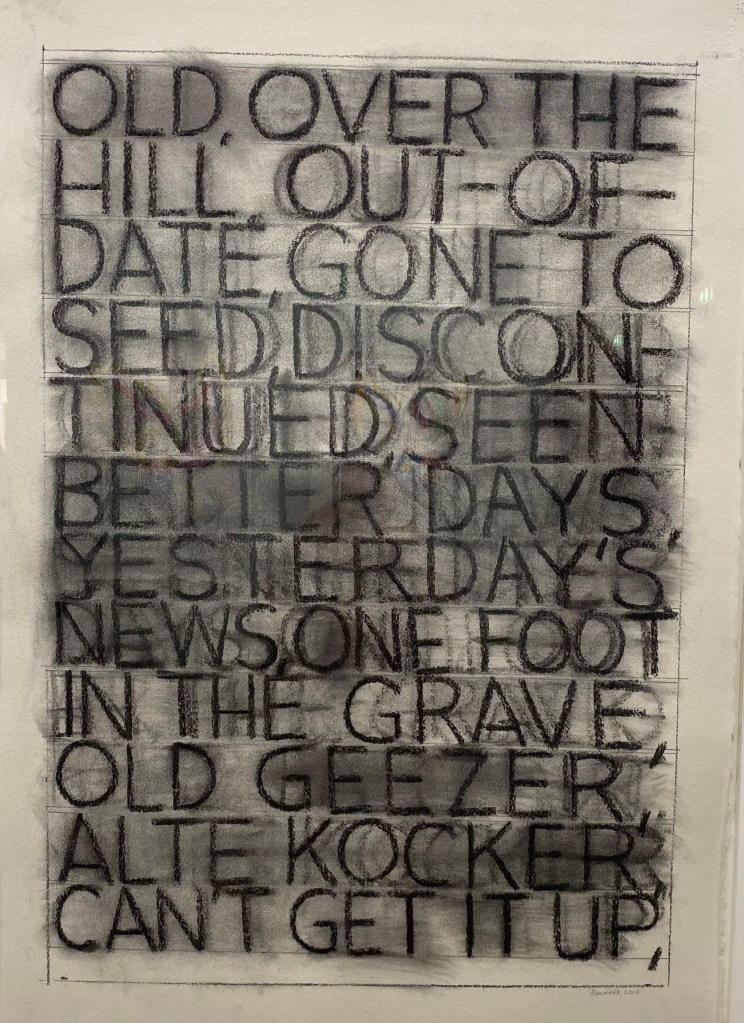 OLD, OVER THE
HILL, OUT-OF-
DATE, GONE TO
SEED, DISCON-
TINUED, SEEN-
BETTER, DAYS,
YESTERDAY'S
NEWS, ONE FOOT
IN THE GRAVE,
OLD GEEZER,
ALTE KOCKER,
CAN'T GET IT UP,